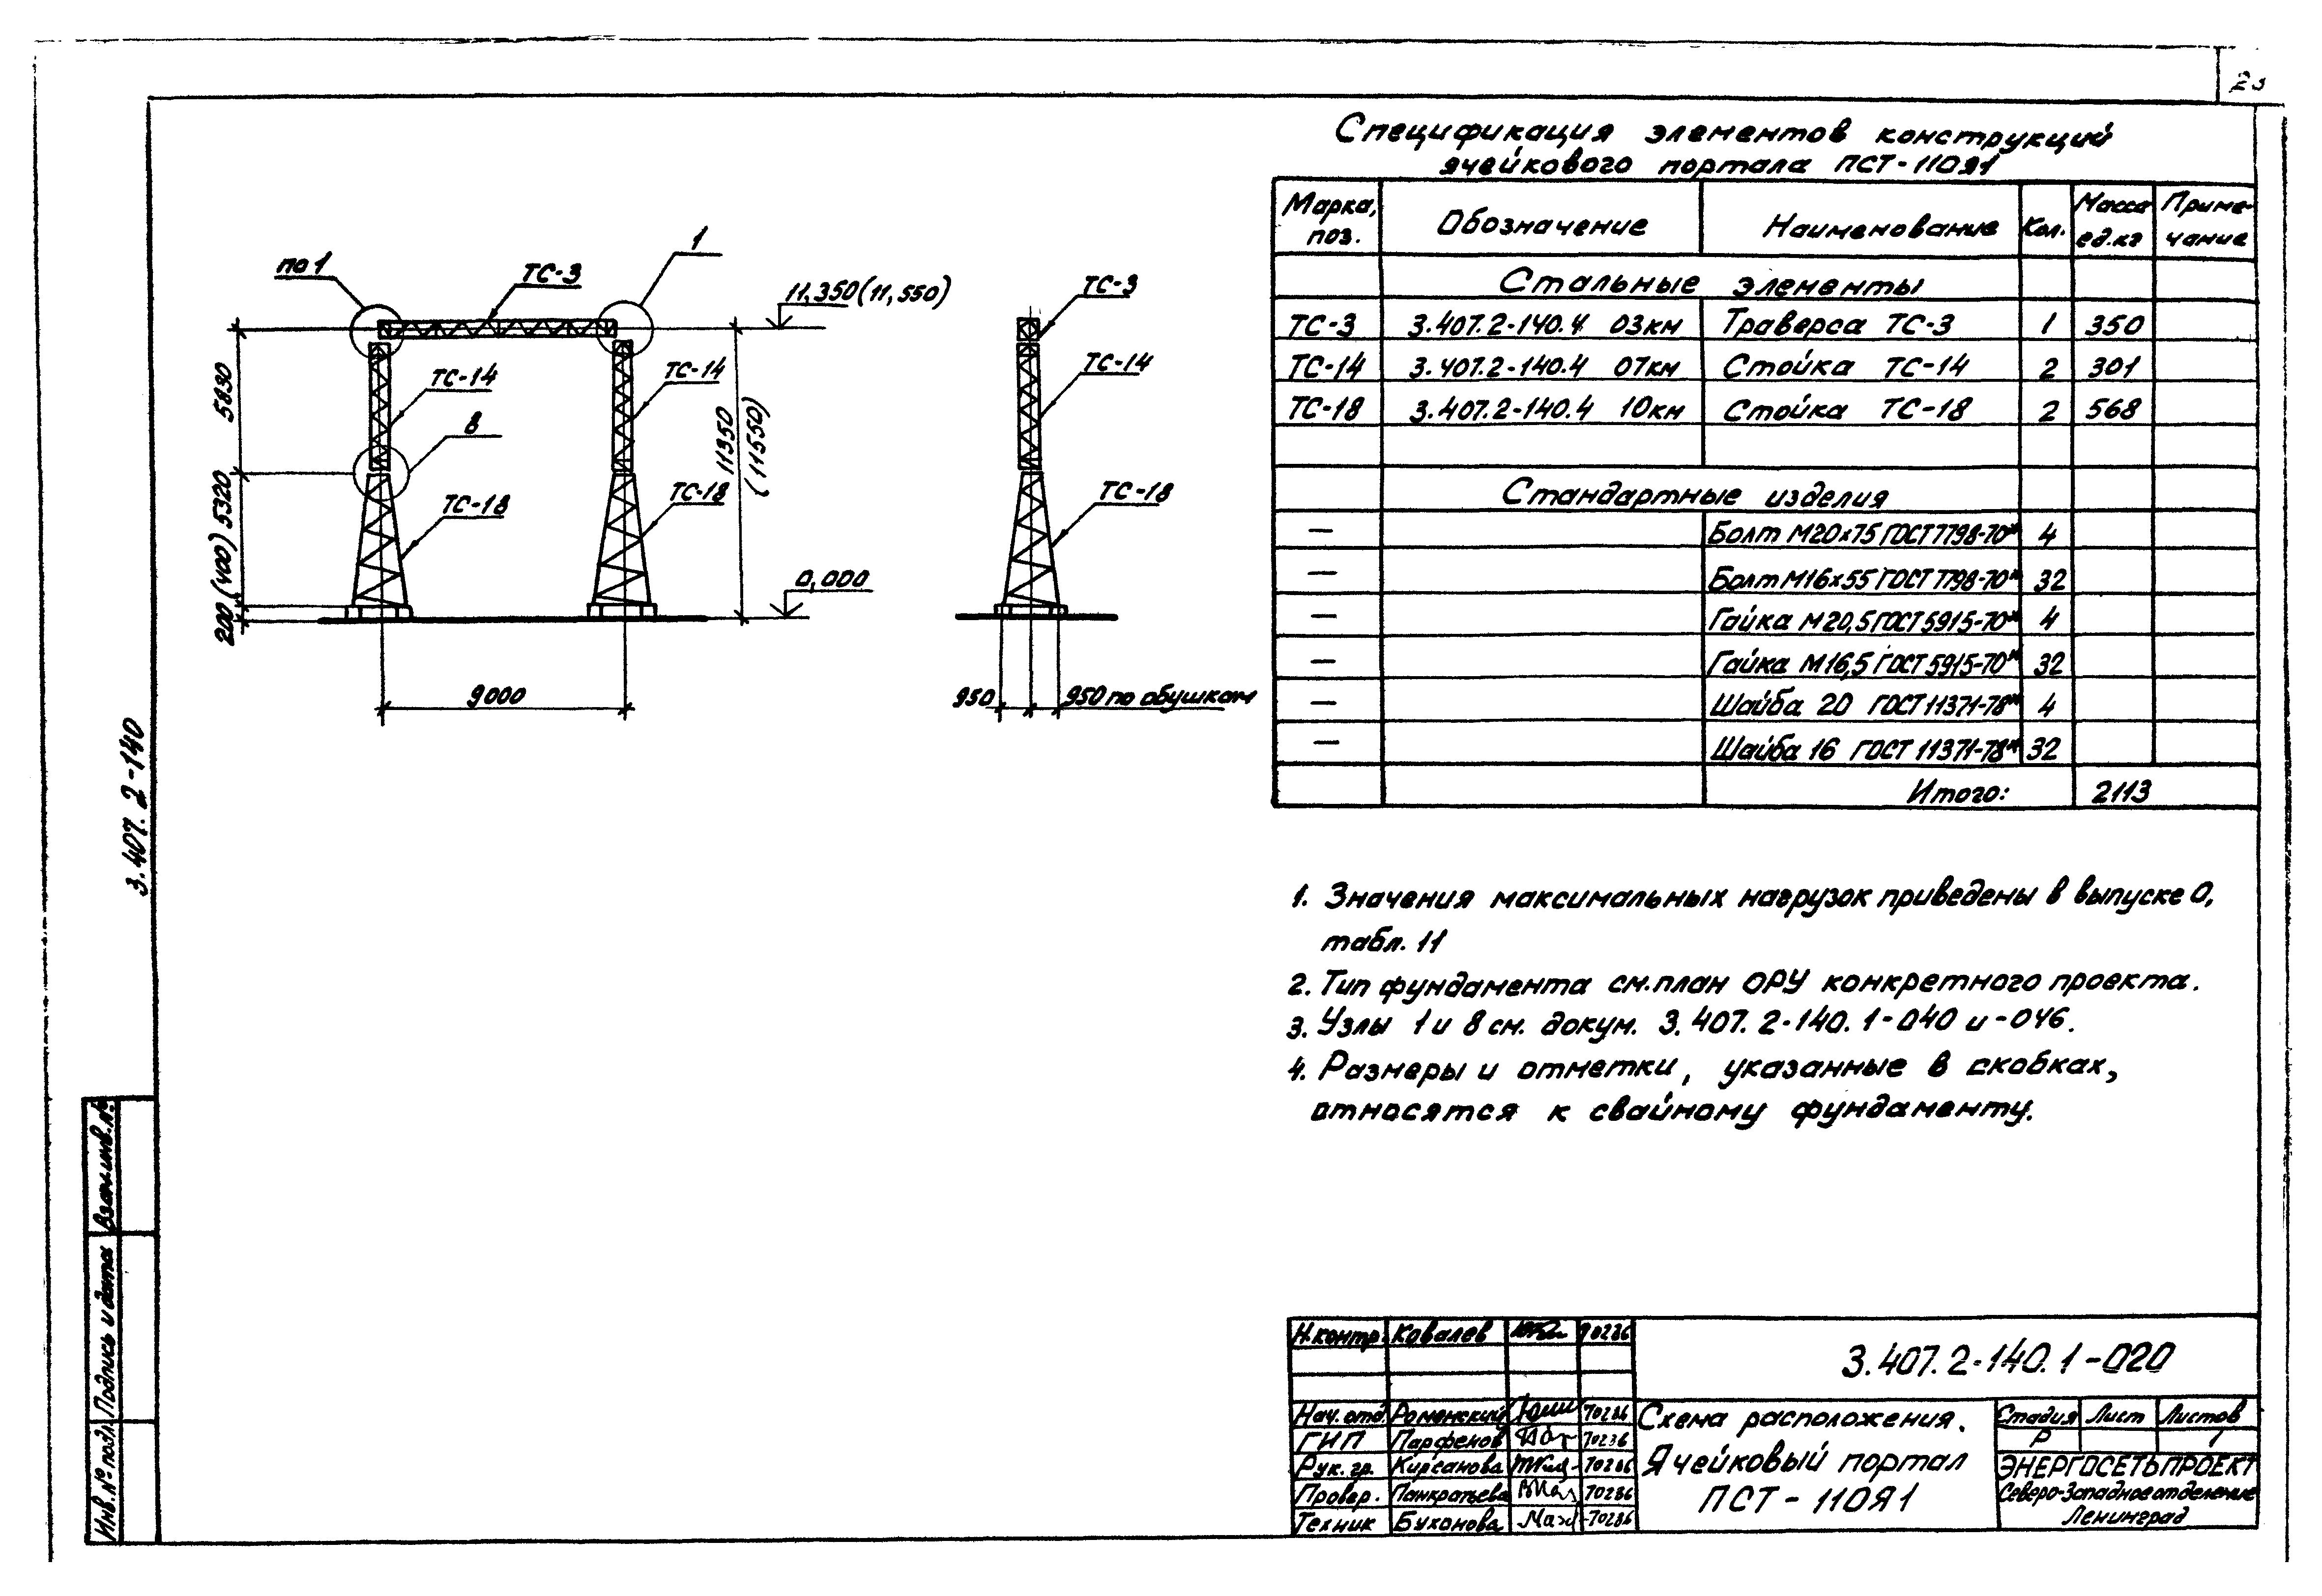 Спецификация элементов конструкций
ячейкового портала ПСТ-110Я1
Марка, поз. Обозначение Наименование Кол. Масса ед.кг Примечание
Стальные элементы
ТС-3 3.407.2-140.4 03км Траверса ТС-3 1 350
ТС-14 3.407.2-140.4 07км Стойка ТС-14 2 301
ТС-18 3.407.2-140.4 10км Стойка ТС-18 2 568
Стандартные изделия
— Болт М20×75 ГОСТ 7798-70* 4
— Болт М16×55 ГОСТ 7798-70* 32
— Гайка М20,5 ГОСТ 5915-70* 4
— Гайка М16,5 ГОСТ 5915-70* 32
— Шайба 20 ГОСТ 11371-78* 4
— Шайба 16 ГОСТ 11371-78* 32
Итого: 2113
по 1
ТС-3
1
11,350 (11,550)
ТС-14
ТС-14
8
ТС-18
ТС-18
5830
5320
200 (400)
11350
(11550)
0,000
9000
ТС-3
ТС-14
ТС-18
950
950 по обушкам
1. Значения максимальных нагрузок приведены в выпуске 0,
табл. 11
2. Тип фундамента см. план ОРУ конкретного проекта.
3. Узлы 1 и 8 см. докум. 3.407.2-140.1-040 и -046.
4. Размеры и отметки, указанные в скобках,
относятся к свайному фундаменту.
3.407.2-140
Взам.инв.№
Подпись и дата
Инв.№ подл.
Н.контр. Ковалев
Нач. отд. Роменский
ГИП Парфенов
Рук. гр. Кирсанова
Провер. Панкратьева
Техник Буханова
3.407.2-140.1-020
Схема расположения.
Ячейковый портал
ПСТ-110Я1
Стадия Лист Листов
Р 1
ЭНЕРГОСЕТЬПРОЕКТ
Северо-Западное отделение
Ленинград